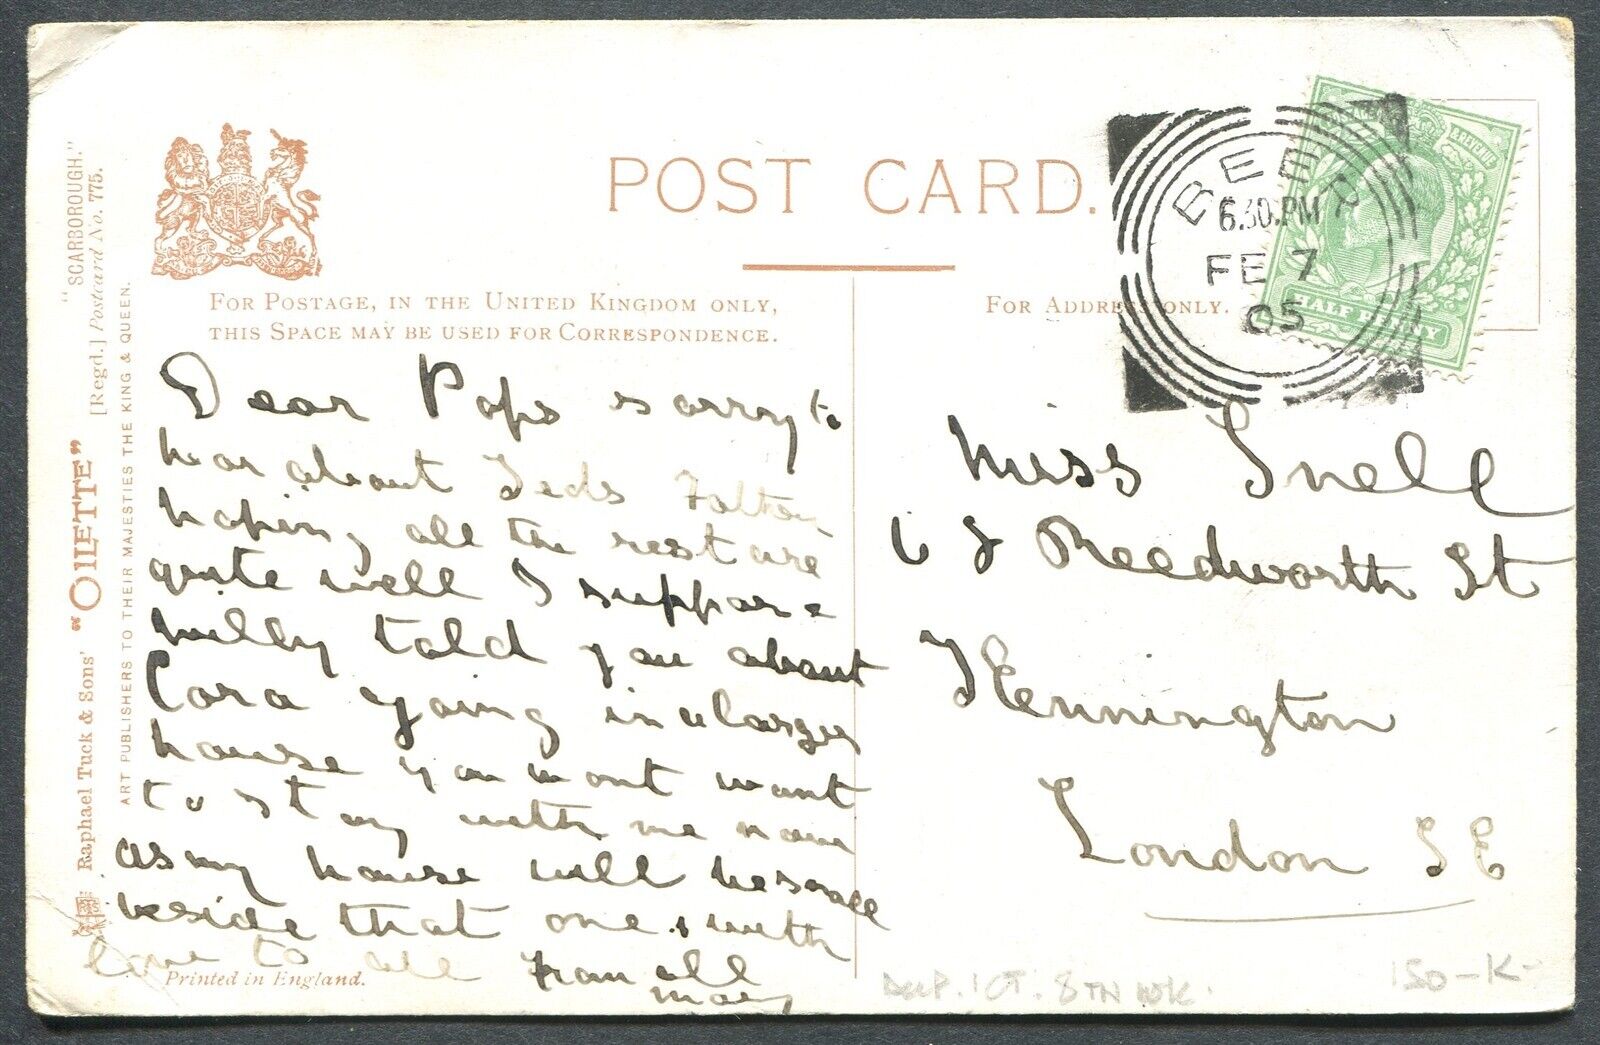 POST CARD.
"SCARBOROUGH."
[Regd.] Postcard No. 775.
Raphael Tuck & Sons' "OILETTE"
ART PUBLISHERS TO THEIR MAJESTIES THE KING & QUEEN.
FOR POSTAGE, IN THE UNITED KINGDOM ONLY,
THIS SPACE MAY BE USED FOR CORRESPONDENCE.
FOR ADDRESS ONLY.
BEER
6.30.PM
FE 7
05
& REVENUE
HALF PENNY
Dear Pops sorry to
hear about Teds
hoping all the rest are
quite well I suppose
told you about
Cora going in a larger
house you wont want
to stay with me now
as my house will be small
beside that one with
love to all from all
May
Miss Snell
Reedworth St
Kennington
London SE
Printed in England.
1 OT. 8TH WK.
150-K-